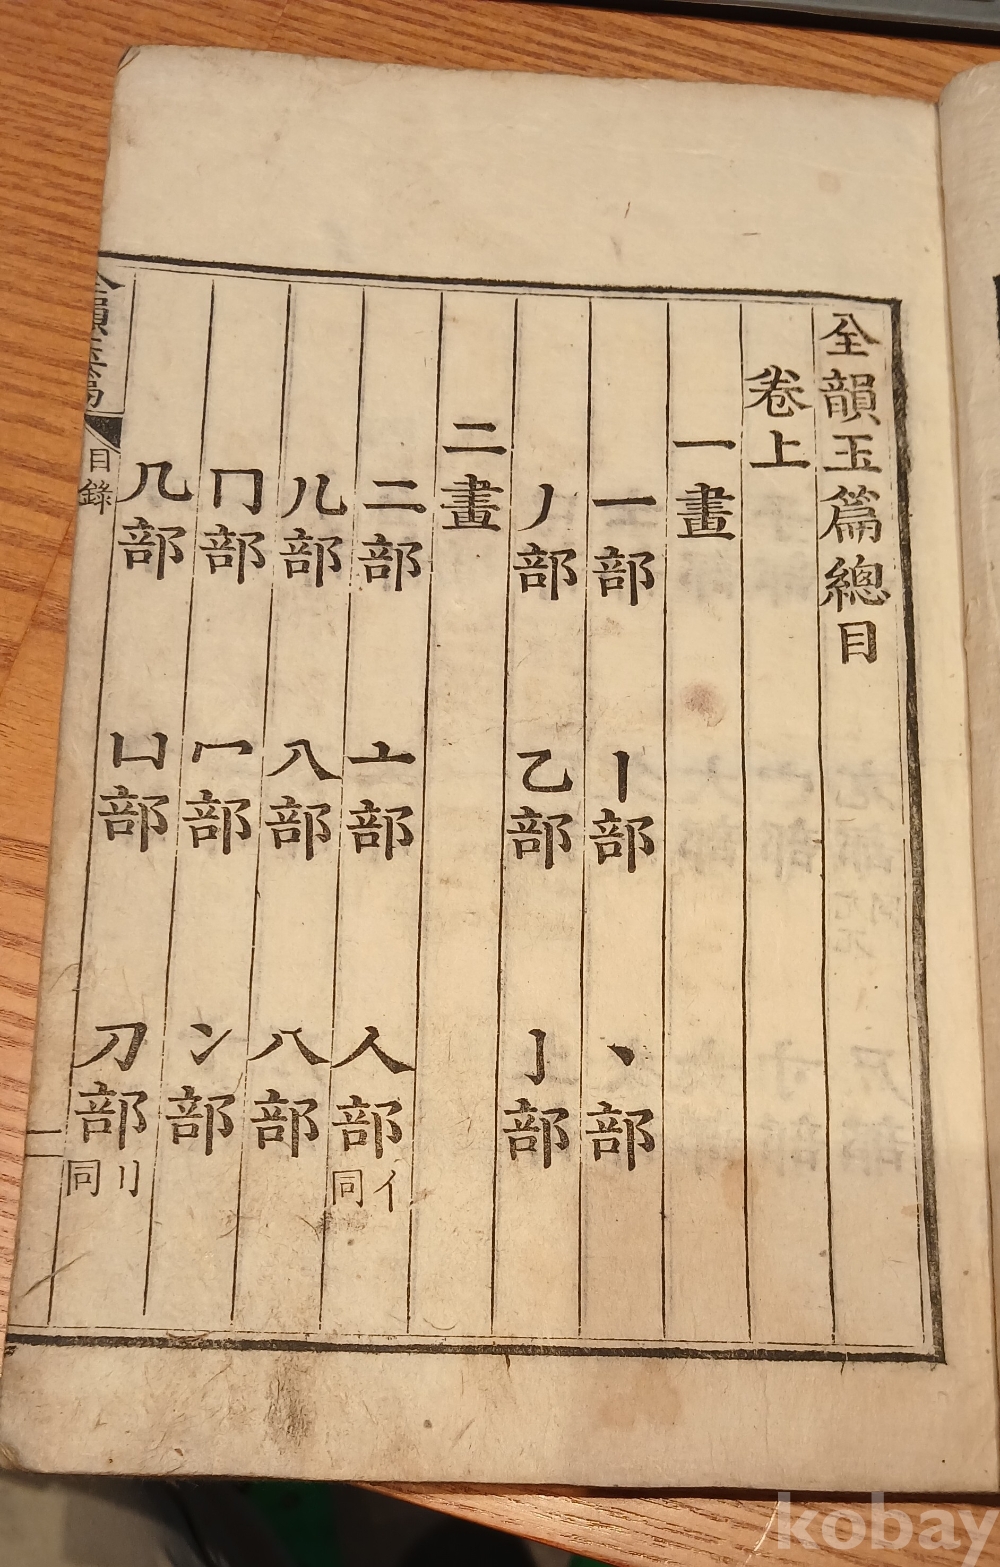 全韻玉篇總目
卷上
一畫
一部 丨部 丶部
丿部 乙部 亅部
二畫
二部 亠部 人部 亻同
儿部 入部 八部
冂部 冖部 冫部
几部 凵部 刀部 刂同
全韻玉篇 目錄
kobay